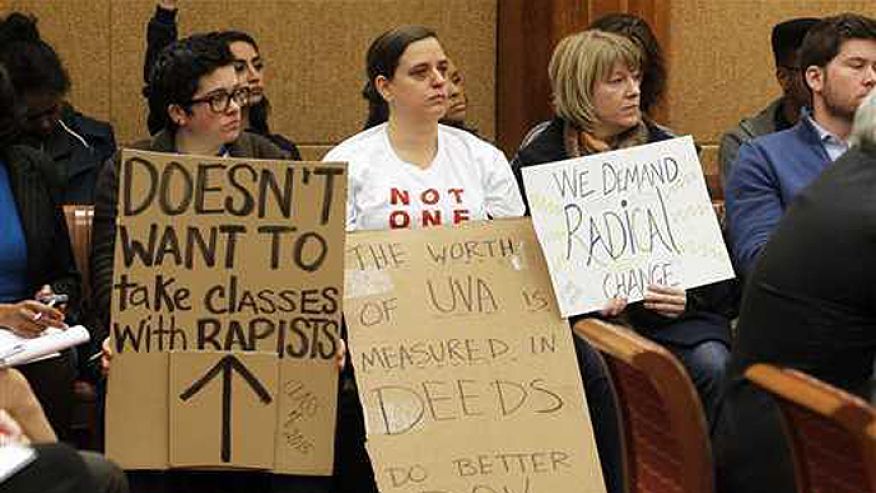 DOESN'T
WANT TO
take classes
with RAPISTS
NOT
ONE
THE WORTH
OF UVA IS
MEASURED IN
DEEDS
DO BETTER
WE DEMAND
RADICAL
CHANGE